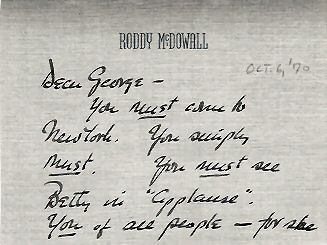 RODDY McDOWALL
OCT. 6, '70
Dear George –
You must come to
New York. You simply
must. You must see
Betty in "Applause".
You of all people – for she